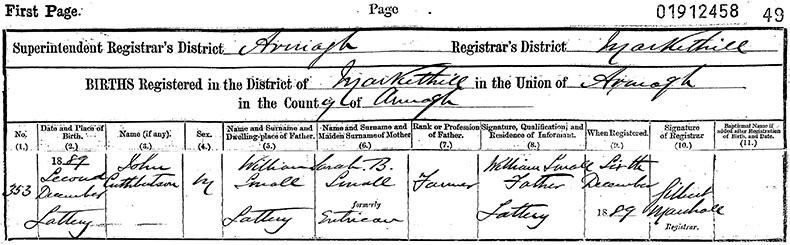 First Page. Page 01912458 49
Superintendent Registrar's District Armagh Registrar's District Markethill
BIRTHS Registered in the District of Markethill in the Union of Armagh
in the County of Armagh
No. Date and Place of Birth. Name (if any). Sex. Name and Surname and Dwelling-place of Father. Name and Surname and Maiden Surname of Mother Rank or Profession of Father. Signature, Qualification, and Residence of Informant. When Registered. Signature of Registrar Baptismal Name if added after Registration of Birth, and Date.
(1.) (2.) (3.) (4.) (5.) (6.) (7.) (8.) (9.) (10.) (11.)
1889 John William Sarah B. William Small Sixth
353 Second Cuthbertson M Small Small Farmer Father December Gilbert
December formerly Marshall
Lattery Lattery Entrican Lattery 1889 Registrar.